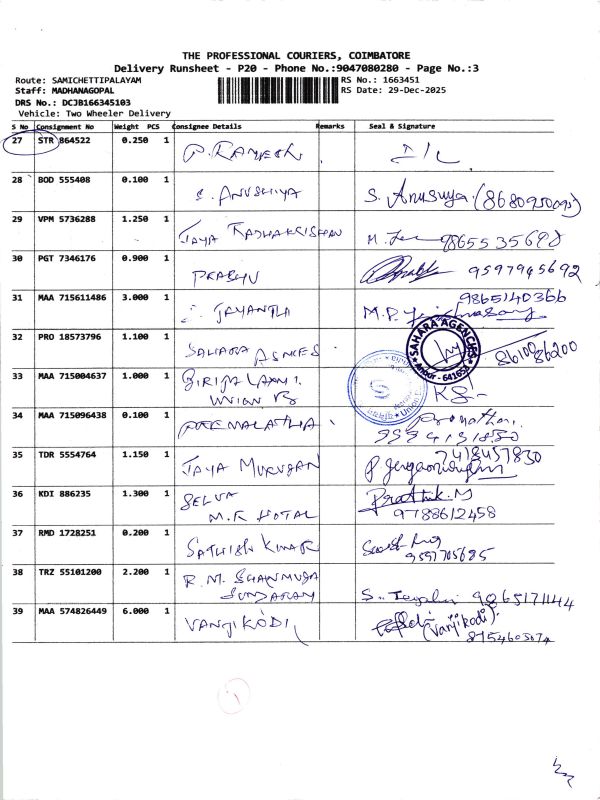 THE PROFESSIONAL COURIERS, COIMBATORE
Delivery Runsheet - P20 - Phone No.:9047080280 - Page No.:3
Route: SAMICHETTIPALAYAM RS No.: 1663451
Staff: MADHANAGOPAL RS Date: 29-Dec-2025
DRS No.: DCJB166345103
Vehicle: Two Wheeler Delivery
S No Consignment No Weight PCS Consignee Details Remarks Seal & Signature
27 STR 864522 0.250 1 P. RAMESH
28 BOD 555408 0.100 1 S. ANUSHIYA S. Anusuya (8680950095)
29 VPM 5736288 1.250 1 JAYA RADHAKRISHNAN 9865535698
30 PGT 7346176 0.900 1 PRABHU 9597945692
31 MAA 715611486 3.000 1 JAYANTHI 9865140366
32 PRO 18573796 1.100 1 SAHARA AGNCES 8610086200
SAHARA AGENCIES
Annur - 641653
33 MAA 715004637 1.000 1 GIRIJA LAXMI
34 MAA 715096438 0.100 1 PREMALATHA
35 TDR 5554764 1.150 1 JAYA MURUGAN 7418457830
36 KDI 886235 1.300 1 SELVA Prathik. M
M.R HOTAL 9788612458
37 RMD 1728251 0.200 1 SATHISH KUMAR
9597705685
38 TRZ 55101200 2.200 1 R.M. SHANMUGA
SUNDARAM 9865171144
39 MAA 574826449 6.000 1 VANJIKODI (Vanjikodi).
8754603074